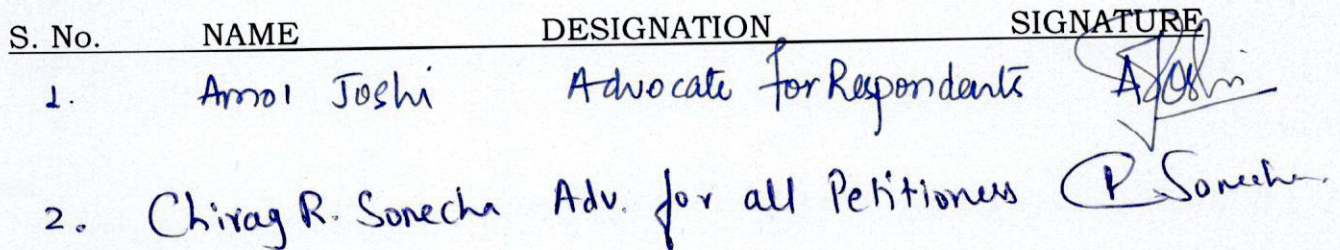 S. No. NAME DESIGNATION SIGNATURE
1. Amol Joshi Advocate for Respondents AJoshi
2. Chirag R. Sonecha Adv. for all Petitioners P. Sonecha.